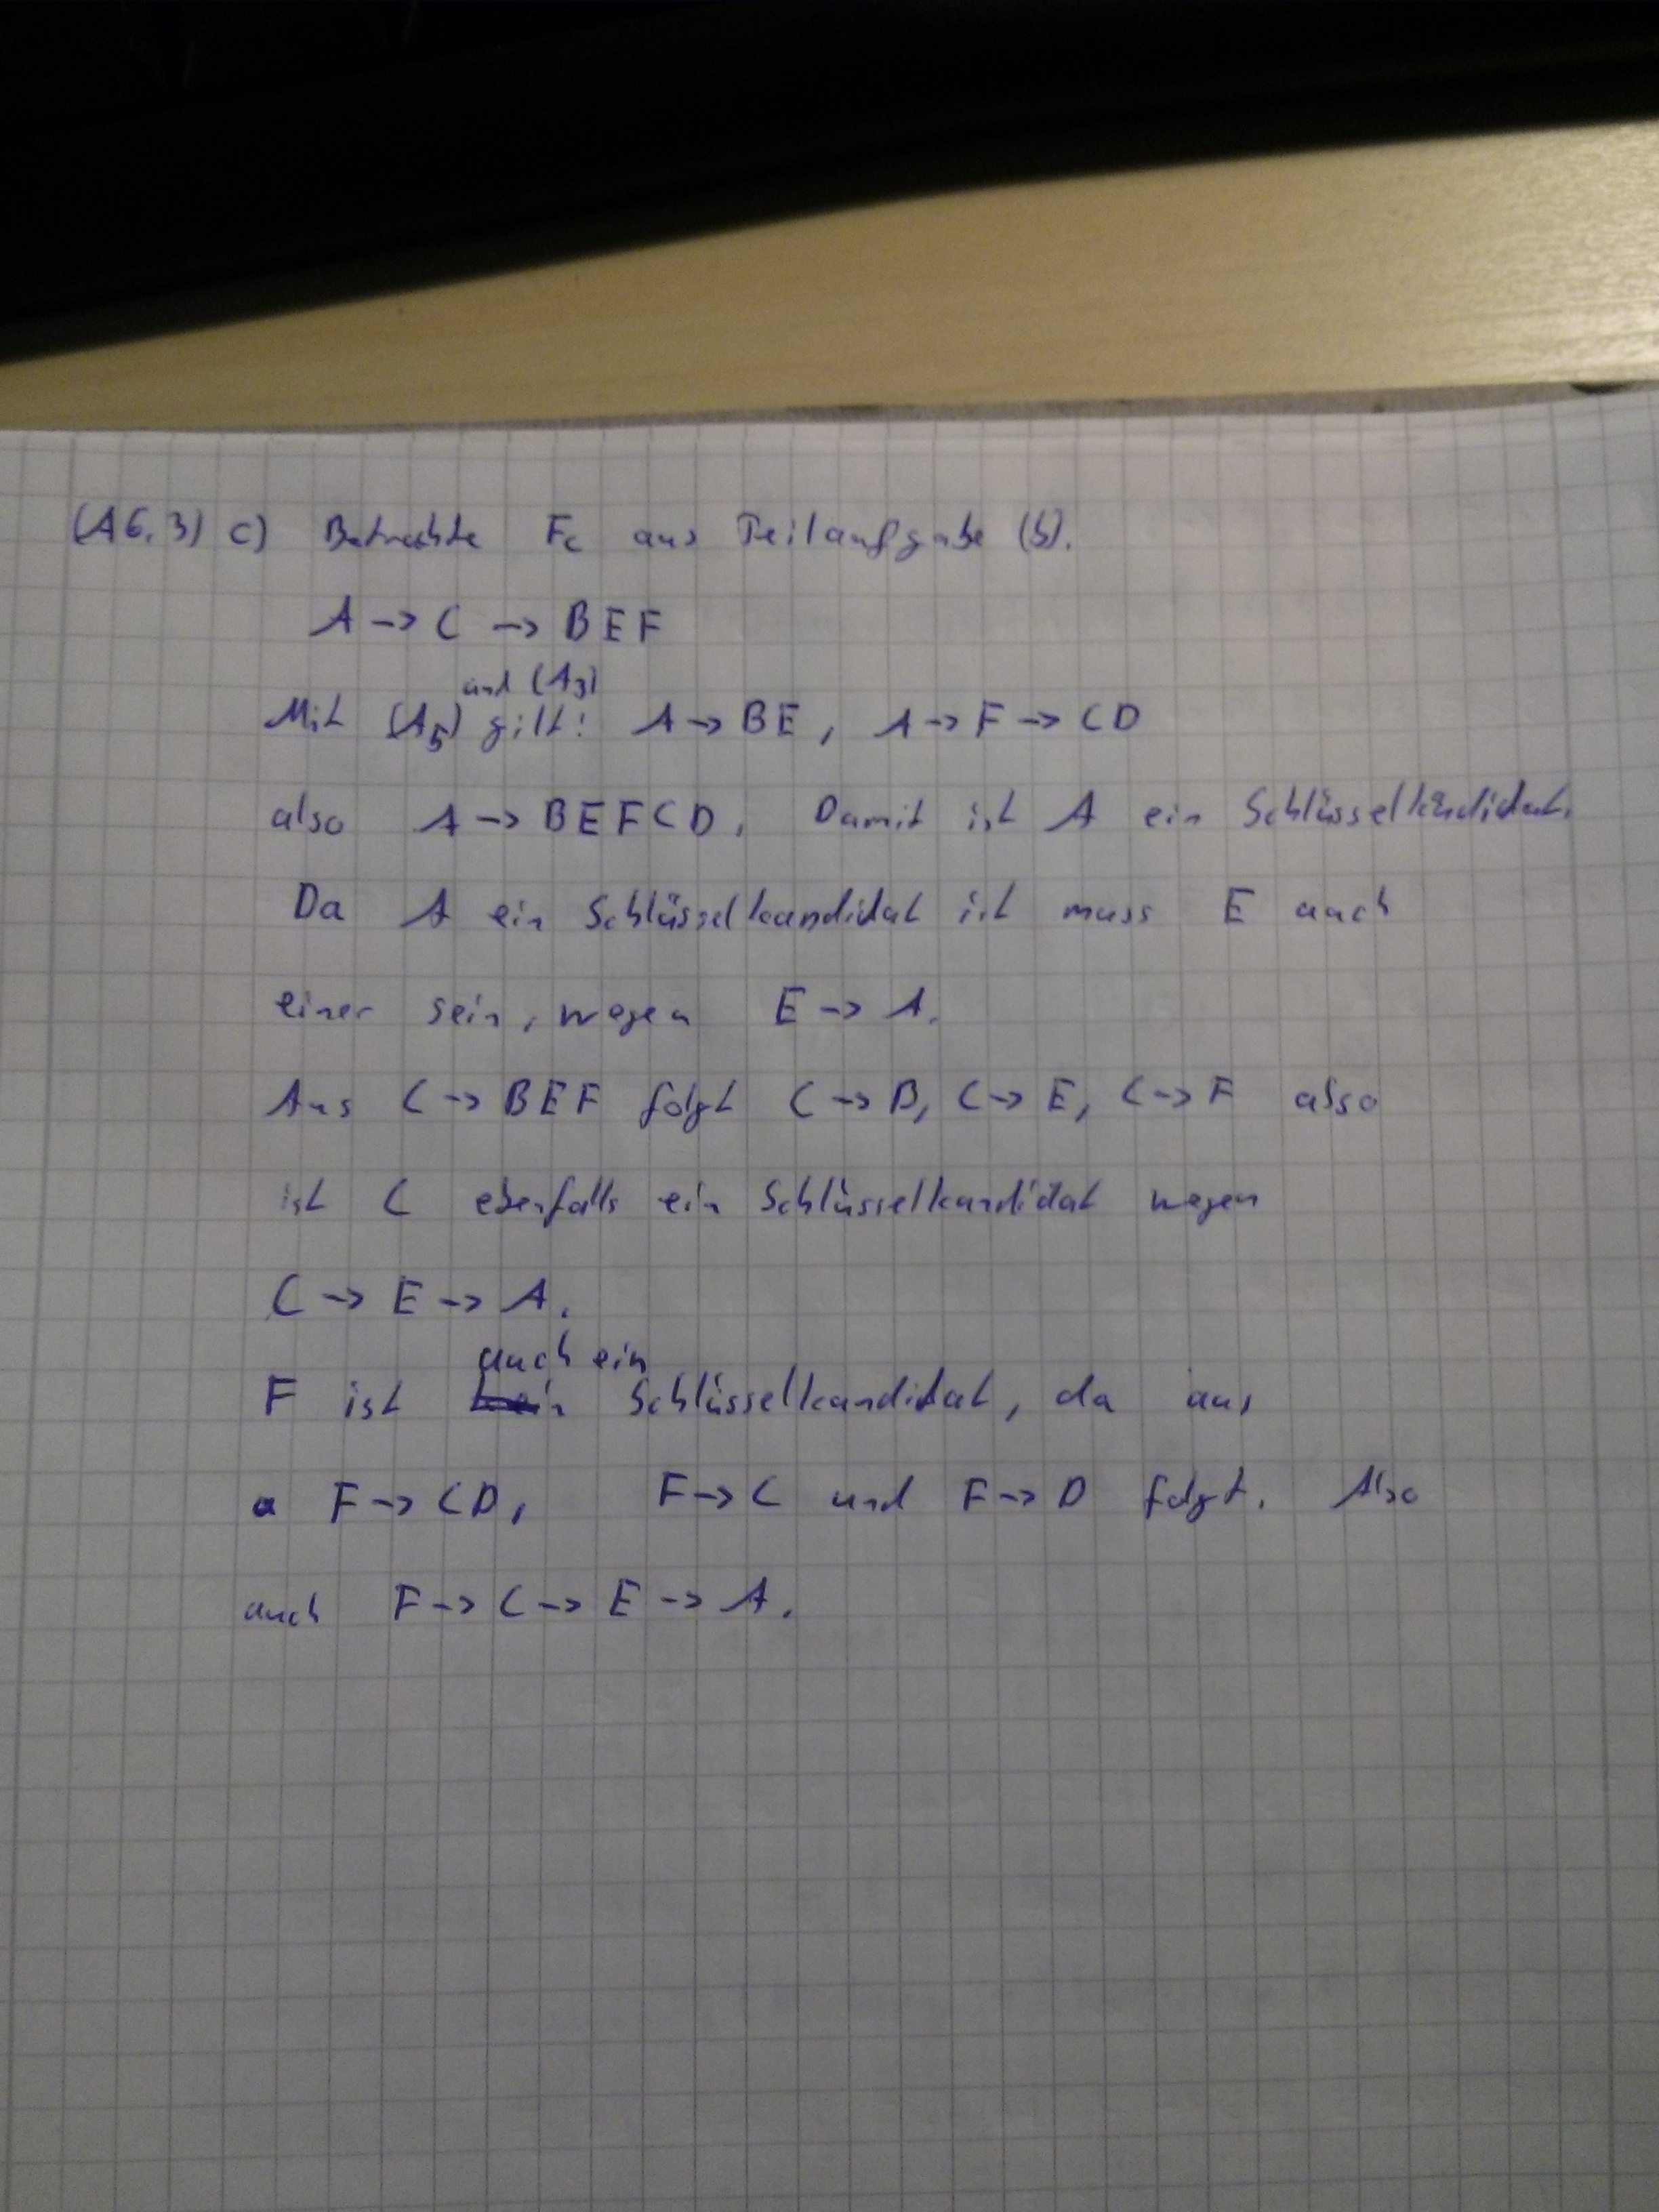 (A6.3) c) Betrachte Fc aus Teilaufgabe (b).
A -> C -> BEF
und (A3)
Mit (A5) gilt: A -> BE, A -> F -> CD
also A -> BEFCD. Damit ist A ein Schlüsselkandidat.
Da A ein Schlüsselkandidat ist muss E auch
einer sein, wegen E -> A.
Aus C -> BEF folgt C -> B, C -> E, C -> F also
ist C ebenfalls ein Schlüsselkandidat wegen
C -> E -> A.
auch ein
F ist Schlüsselkandidat, da aus
F -> CD, F -> C und F -> D folgt. Also
auch F -> C -> E -> A.